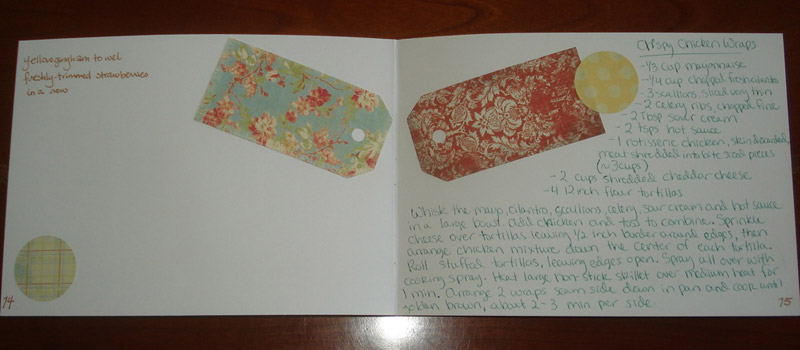 yellow gingham towel
freshly-trimmed strawberries
in a row
74
Crispy Chicken Wraps
-1/3 cup mayonnaise
-1/4 cup chopped fresh cilantro
-3 scallions, sliced very thin
-2 celery ribs chopped fine
-2 tbsp sour cream
-2 tsps hot sauce
-1 rotisserie chicken, skin discarded,
meat shredded into bite sized pieces
(~3 cups)
-2 cups shredded cheddar cheese
-4 12 inch flour tortillas
Whisk the mayo, cilantro, scallions, celery, sour cream and hot sauce
in a large bowl. Add chicken and toss to combine. Sprinkle
cheese over tortillas leaving 1/2 inch border around edges, then
arrange chicken mixture down the center of each tortilla.
Roll stuffed tortillas, leaving edges open. Spray all over with
cooking spray. Heat large non-stick skillet over medium heat for
1 min. Arrange 2 wraps seam side down in pan and cook until
golden brown, about 2-3 min per side.
75